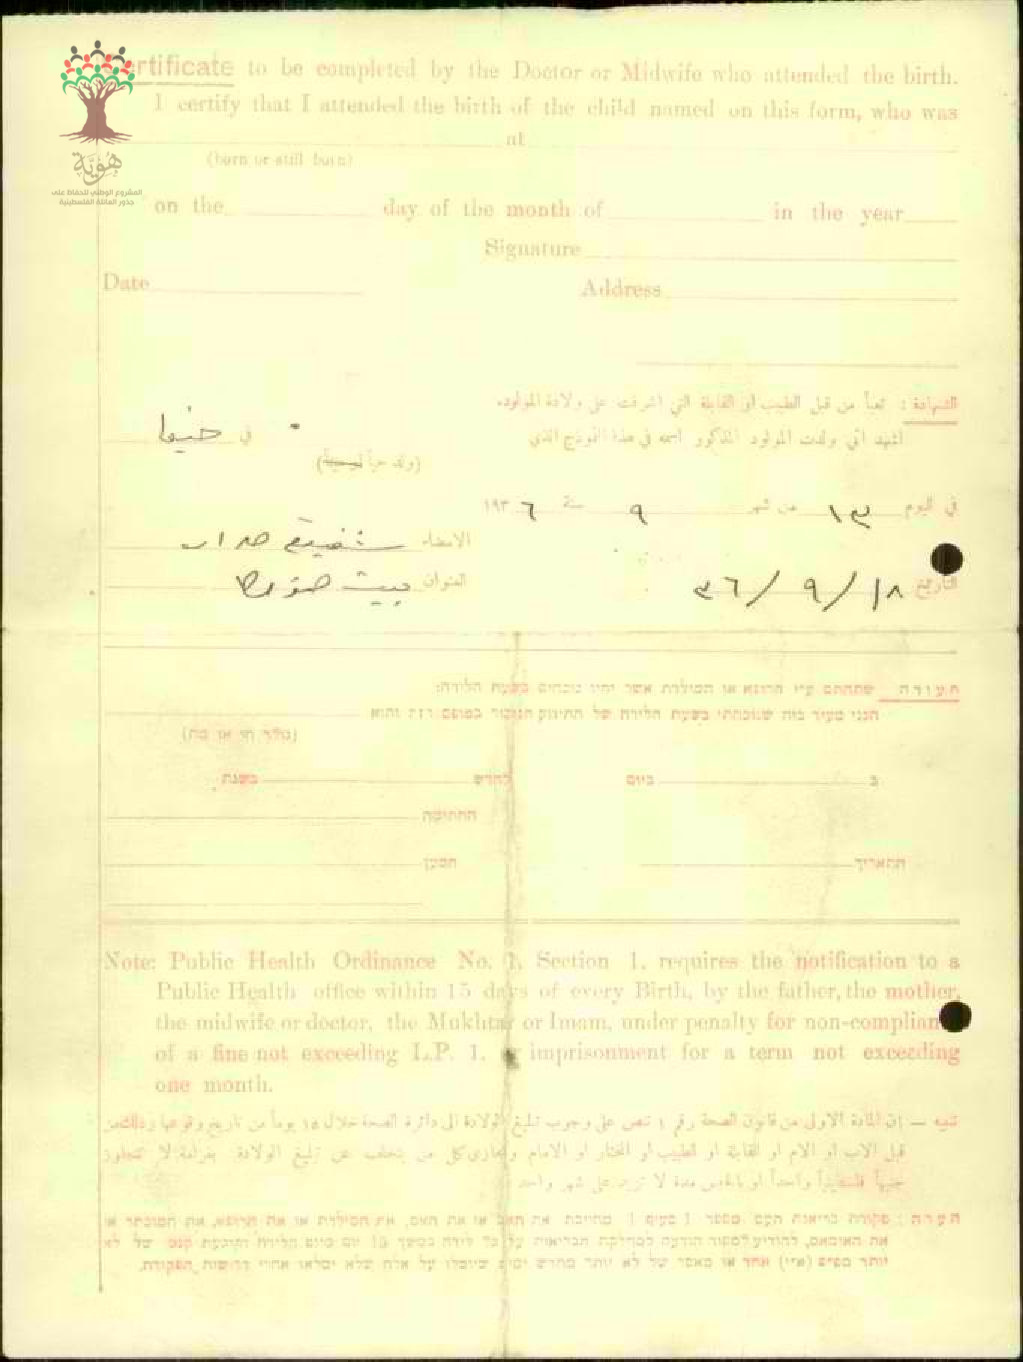 هوية
المشروع الوطني للحفاظ على
جذور العائلة الفلسطينية
Certificate to be completed by the Doctor or Midwife who attended the birth.
I certify that I attended the birth of the child named on this form, who was
at
(born or still born)
on the day of the month of in the year
Signature
Date Address
الشهادة : تعبأ من قبل الطبيب او القابلة التي اشرفت على ولادة المولود.
اشهد اني ولدت المولود المذكور اسمه في هذه النموذج الذي في حيفا
(ولد حياً او ميتاً)
في اليوم ١٣ من شهر ٩ سنة ١٩٣٦
الامضاء شفيقة
التاريخ ١٨/٩/٣٦ العنوان بيت
תעודה שתחתם ע״י הרופא או המילדת אשר יהיו נוכחים בשעת הלידה:
הנני מעיד בזה שנוכחתי בשעת הלידה של התינוק הנזכר בטופס הזה והוא
(נולד חי או מת)
ב ביום לחדש בשנת
החתימה
התאריך המען
Note: Public Health Ordinance No. 1, Section 1, requires the notification to a
Public Health office within 15 days of every Birth, by the father, the mother,
the midwife or doctor, the Mukhtar or Imam, under penalty for non-complian
of a fine not exceeding L.P. 1. or imprisonment for a term not exceeding
one month.
تنبيه — إن المادة الاولى من قانون الصحة رقم ١ تنص على وجوب تبليغ الولادة الى دائرة الصحة خلال ١٥ يوماً من تاريخ وقوعها وذلك من
قبل الاب او الام او القابلة او الطبيب او المختار او الامام ويجازى كل من يتخلف عن تبليغ الولادة بغرامة لا تتجاوز
جنيهاً فلسطينياً واحداً او بالحبس مدة لا تزيد على شهر واحد
הערה : פקודת בריאות העם מספר 1 סעיף 1 מחייבת את האב או את האם, את המילדת או את הרופא, את המוכתר או
את האימאם, להודיע לספור הודעה למחלקת הבריאות על כל לידה במשך 15 יום מיום הלידה וקובעת קנס של לא
יותר מפ״פ (א״י) אחד או מאסר של לא יותר מחדש ימים שיוטלו על אלה שלא ימלאו אחרי דרישות הפקודה.